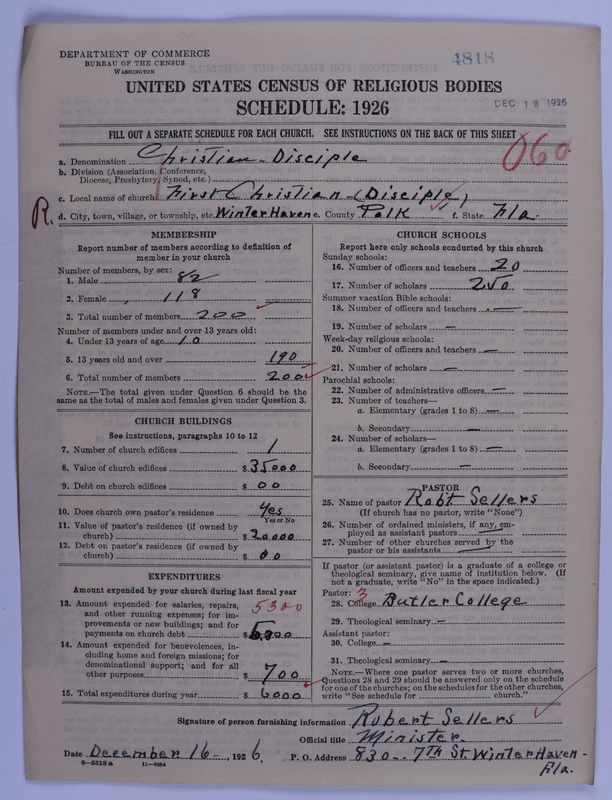 DEPARTMENT OF COMMERCE
BUREAU OF THE CENSUS
WASHINGTON
4818
UNITED STATES CENSUS OF RELIGIOUS BODIES
SCHEDULE: 1926
DEC 18 1926
FILL OUT A SEPARATE SCHEDULE FOR EACH CHURCH. SEE INSTRUCTIONS ON THE BACK OF THIS SHEET
060
a. Denomination Christian - Disciple
b. Division (Association, Conference,
Diocese, Presbytery, Synod, etc.)
c. Local name of church First Christian - (Disciple)
R. d. City, town, village, or township, etc. Winter Haven e. County Polk f. State Fla.
MEMBERSHIP
Report number of members according to definition of
member in your church
Number of members, by sex:
1. Male 82
2. Female 118
3. Total number of members 200
Number of members under and over 13 years old:
4. Under 13 years of age 10
5. 13 years old and over 190
6. Total number of members 200
NOTE.—The total given under Question 6 should be
the same as the total of males and females given under Question 3.
CHURCH BUILDINGS
See instructions, paragraphs 10 to 12
7. Number of church edifices 1
8. Value of church edifices $ 35000
9. Debt on church edifices $ 00
10. Does church own pastor's residence? Yes
Yes or No
11. Value of pastor's residence (if owned by
church) $ 20000
12. Debt on pastor's residence (if owned by
church) $ 00
EXPENDITURES
Amount expended by your church during last fiscal year
13. Amount expended for salaries, repairs, 5300
and other running expenses; for im-
provements or new buildings; and for
payments on church debt $
14. Amount expended for benevolences, in-
cluding home and foreign missions; for
denominational support; and for all
other purposes $ 700
15. Total expenditures during year $ 6000
CHURCH SCHOOLS
Report here only schools conducted by this church
Sunday schools:
16. Number of officers and teachers 20
17. Number of scholars 250
Summer vacation Bible schools:
18. Number of officers and teachers —
19. Number of scholars —
Week-day religious schools:
20. Number of officers and teachers —
21. Number of scholars —
Parochial schools:
22. Number of administrative officers —
23. Number of teachers—
a. Elementary (grades 1 to 8) —
b. Secondary —
24. Number of scholars—
a. Elementary (grades 1 to 8) —
b. Secondary —
PASTOR
25. Name of pastor Robt Sellers
(If church has no pastor, write "None")
26. Number of ordained ministers, if any, em-
ployed as assistant pastors —
27. Number of other churches served by the
pastor or his assistants —
If pastor (or assistant pastor) is a graduate of a college or
theological seminary, give name of institution below. (If
not a graduate, write "No" in the space indicated.)
Pastor: 3
28. College Butler College
29. Theological seminary —
Assistant pastor:
30. College —
31. Theological seminary —
NOTE.—Where one pastor serves two or more churches,
Questions 28 and 29 should be answered only on the schedule
for one of the churches; on the schedules for the other churches,
write "See schedule for church."
Signature of person furnishing information Robert Sellers
Official title Minister.
Date December 16 -, 1926. P. O. Address 830 - 7th St. Winter Haven -
Fla.
8-5518a 11-9064